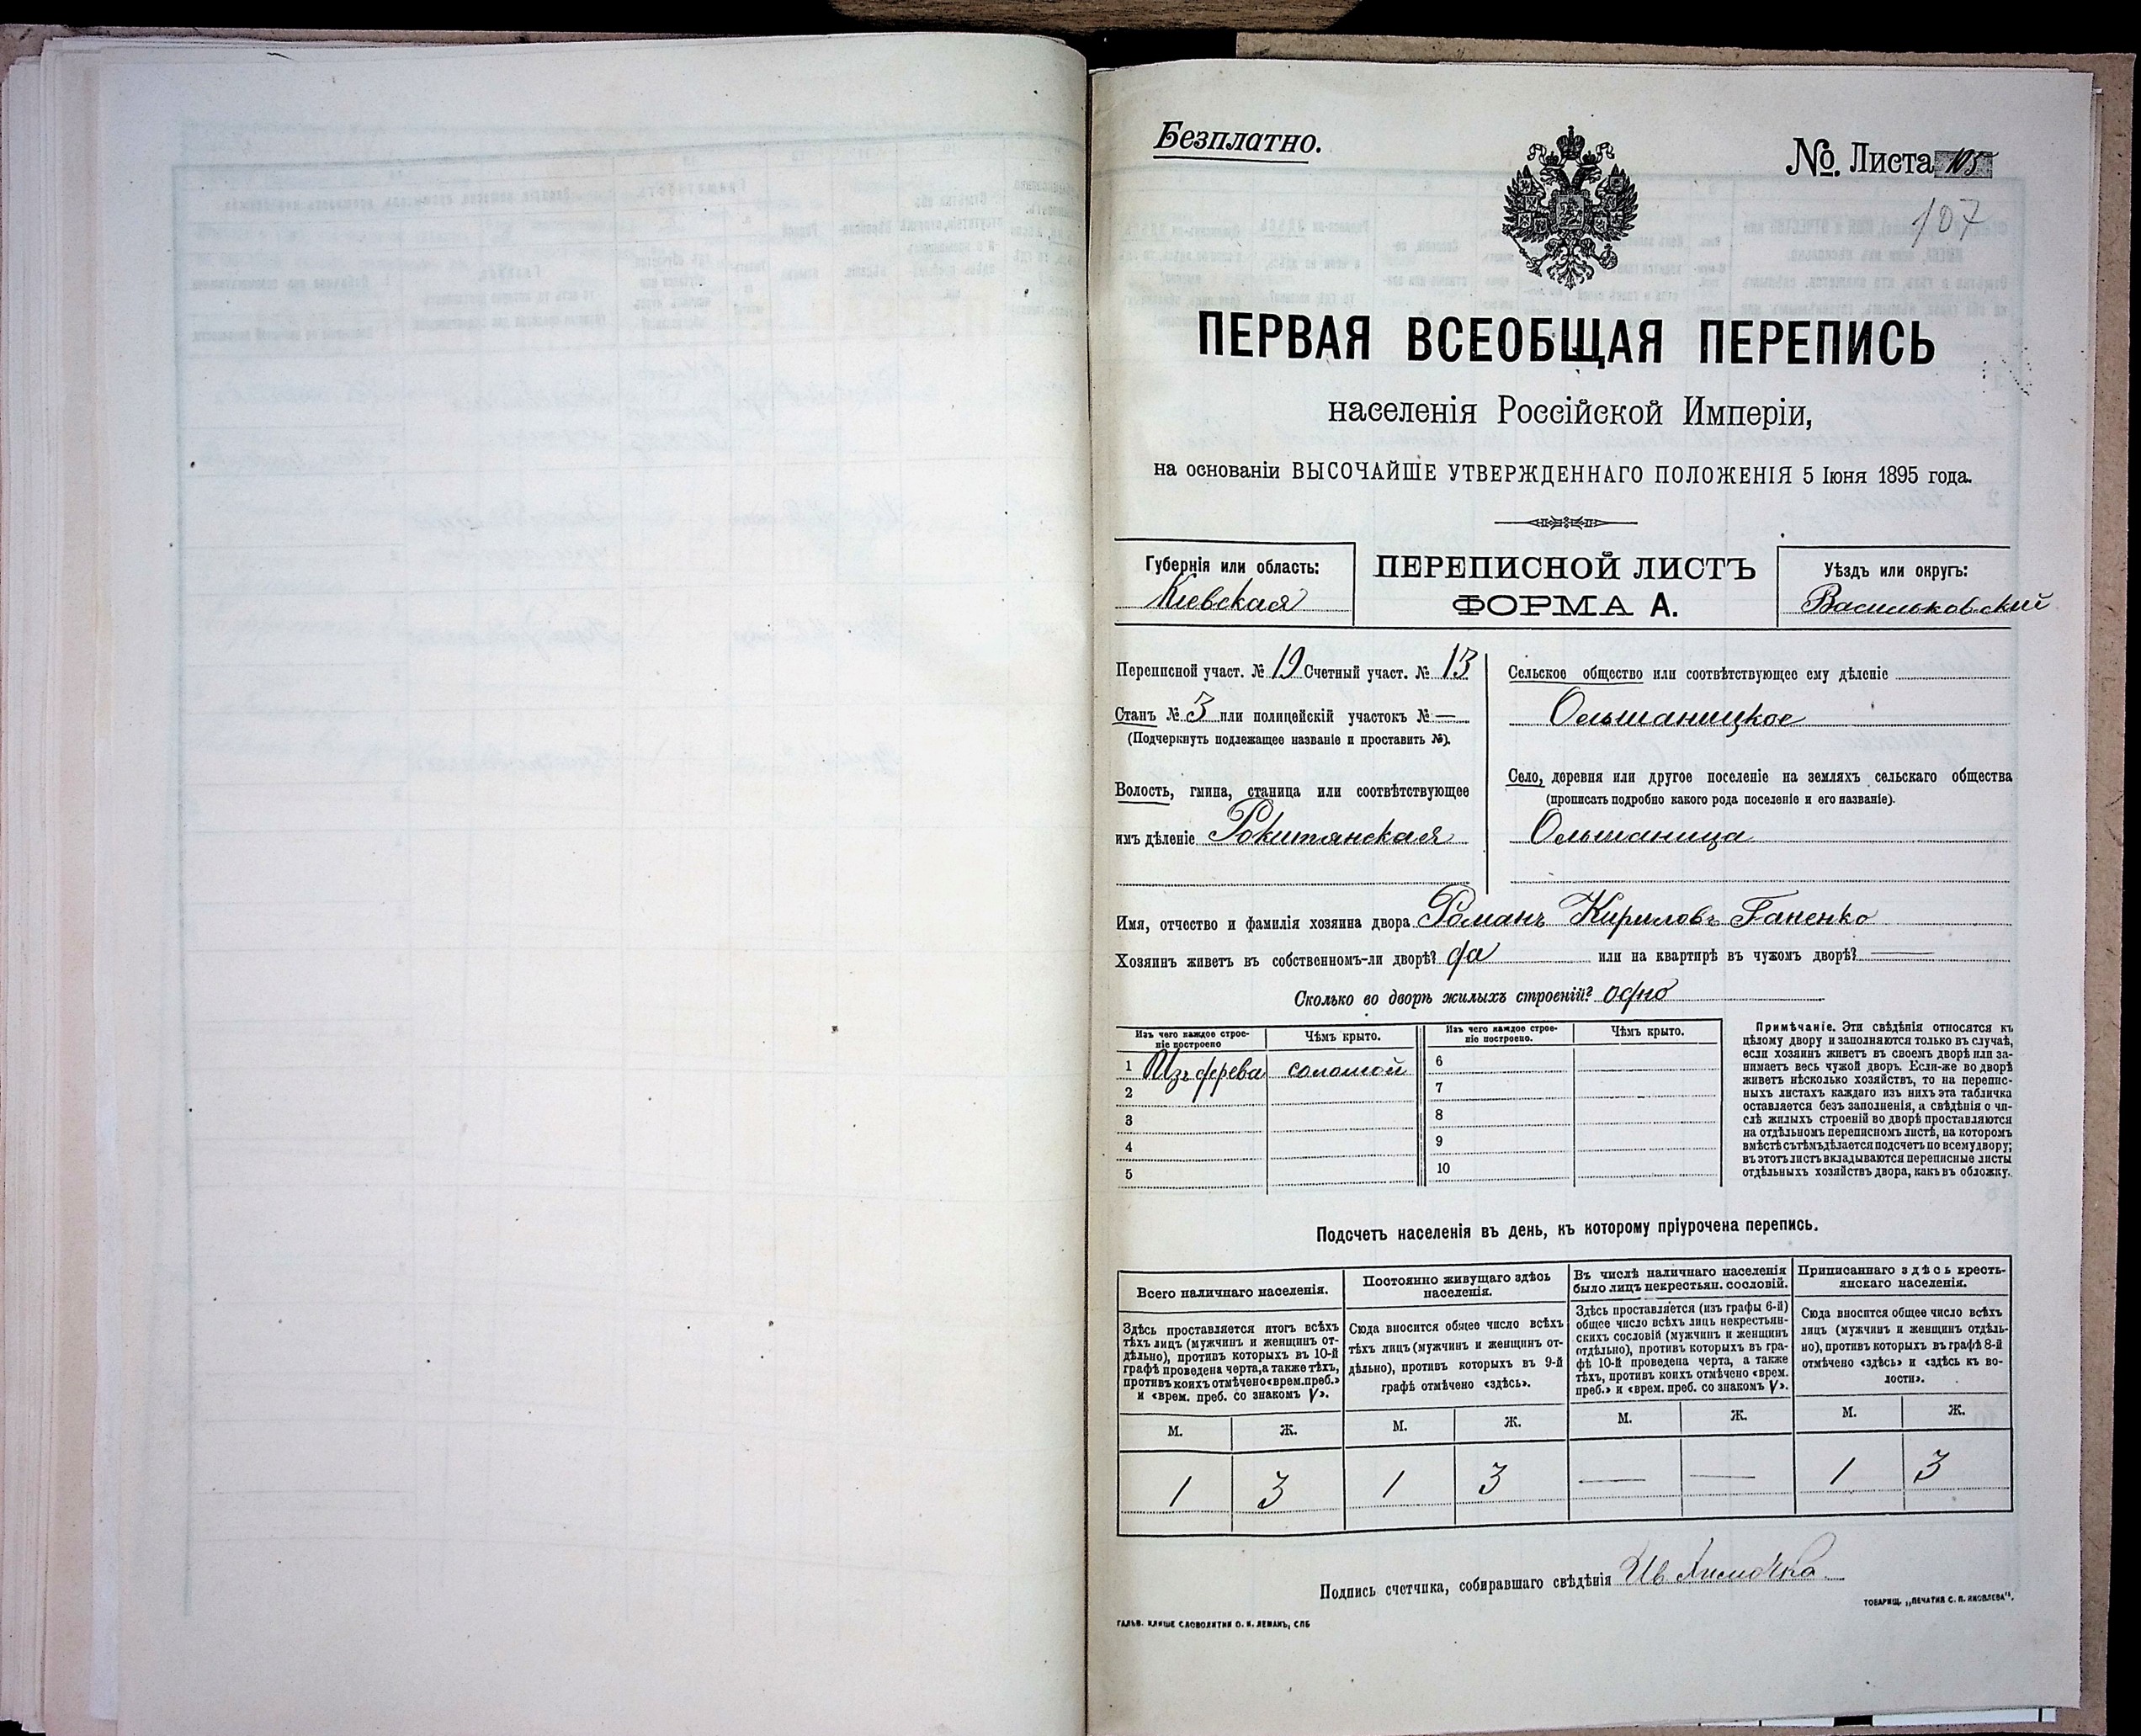 Безплатно.
№. Листа 105
107
ПЕРВАЯ ВСЕОБЩАЯ ПЕРЕПИСЬ
населенія Россійской Имперіи,
на основаніи ВЫСОЧАЙШЕ УТВЕРЖДЕННАГО ПОЛОЖЕНІЯ 5 Іюня 1895 года.
Губернія или область:
Кіевская
ПЕРЕПИСНОЙ ЛИСТЪ
ФОРМА А.
Уѣздъ или округъ:
Васильковскій
Переписной участ. № 19 Счетный участ. № 13
Станъ № 3 или полицейскій участокъ № —
(Подчеркнуть подлежащее названіе и проставить №).
Волость, гмина, станица или соотвѣтствующее
имъ дѣленіе Рокитянская
Сельское общество или соотвѣтствующее ему дѣленіе
Ольшаницкое
Село, деревня или другое поселеніе на земляхъ сельскаго общества
(прописать подробно какого рода поселеніе и его названіе).
Ольшаница
Имя, отчество и фамилія хозяина двора Романъ Кириловъ Ганенко
Хозяинъ живетъ въ собственномъ-ли дворѣ? да или на квартирѣ въ чужомъ дворѣ? —
Сколько во дворѣ жилыхъ строеній? одно
Изъ чего каждое строе-
ніе построено
Чѣмъ крыто.
Изъ чего каждое строе-
ніе построено.
Чѣмъ крыто.
1 Изъ дерева соломой 6
2 7
3 8
4 9
5 10
Примѣчаніе. Эти свѣдѣнія относятся къ
цѣлому двору и заполняются только въ случаѣ,
если хозяинъ живетъ въ своемъ дворѣ или за-
нимаетъ весь чужой дворъ. Если-же во дворѣ
живетъ нѣсколько хозяйствъ, то на перепис-
ныхъ листахъ каждаго изъ нихъ эта табличка
оставляется безъ заполненія, а свѣдѣнія о чи-
слѣ жилыхъ строеній во дворѣ проставляются
на отдѣльномъ переписномъ листѣ, на которомъ
вмѣстѣ съ тѣмъ дѣлается подсчетъ по всему двору;
въ этотъ листъ вкладываются переписные листы
отдѣльныхъ хозяйствъ двора, какъ въ обложку.
Подсчетъ населенія въ день, къ которому пріурочена перепись.
Всего наличнаго населенія.
Здѣсь проставляется итогъ всѣхъ
тѣхъ лицъ (мужчинъ и женщинъ от-
дѣльно), противъ которыхъ въ 10-й
графѣ проведена черта, а также тѣхъ,
противъ коихъ отмѣчено «врем. преб.»
и «врем. преб. со знакомъ V».
Постоянно живущаго здѣсь
населенія.
Сюда вносится общее число всѣхъ
тѣхъ лицъ (мужчинъ и женщинъ от-
дѣльно), противъ которыхъ въ 9-й
графѣ отмѣчено «здѣсь».
Въ числѣ наличнаго населенія
было лицъ некрестьян. сословій.
Здѣсь проставляется (изъ графы 6-й)
общее число всѣхъ лицъ некрестьян-
скихъ сословій (мужчинъ и женщинъ
отдѣльно), противъ которыхъ въ гра-
фѣ 10-й проведена черта, а также
тѣхъ, противъ коихъ отмѣчено «врем.
преб.» и «врем. преб. со знакомъ V».
Приписаннаго здѣсь кресть-
янскаго населенія.
Сюда вносится общее число всѣхъ
лицъ (мужчинъ и женщинъ отдѣль-
но), противъ которыхъ въ графѣ 8-й
отмѣчено «здѣсь» и «здѣсь къ во-
лости».
М. Ж. М. Ж. М. Ж. М. Ж.
1 3 1 3 — — 1 3
Подпись счетчика, собиравшаго свѣдѣнія Ив
ГАЛЬВ. КЛИШЕ СЛОВОЛИТНИ О. И. ЛЕМАНЪ, СПБ
ТОВАРИЩ. „ПЕЧАТНЯ С. П. ЯКОВЛЕВА".